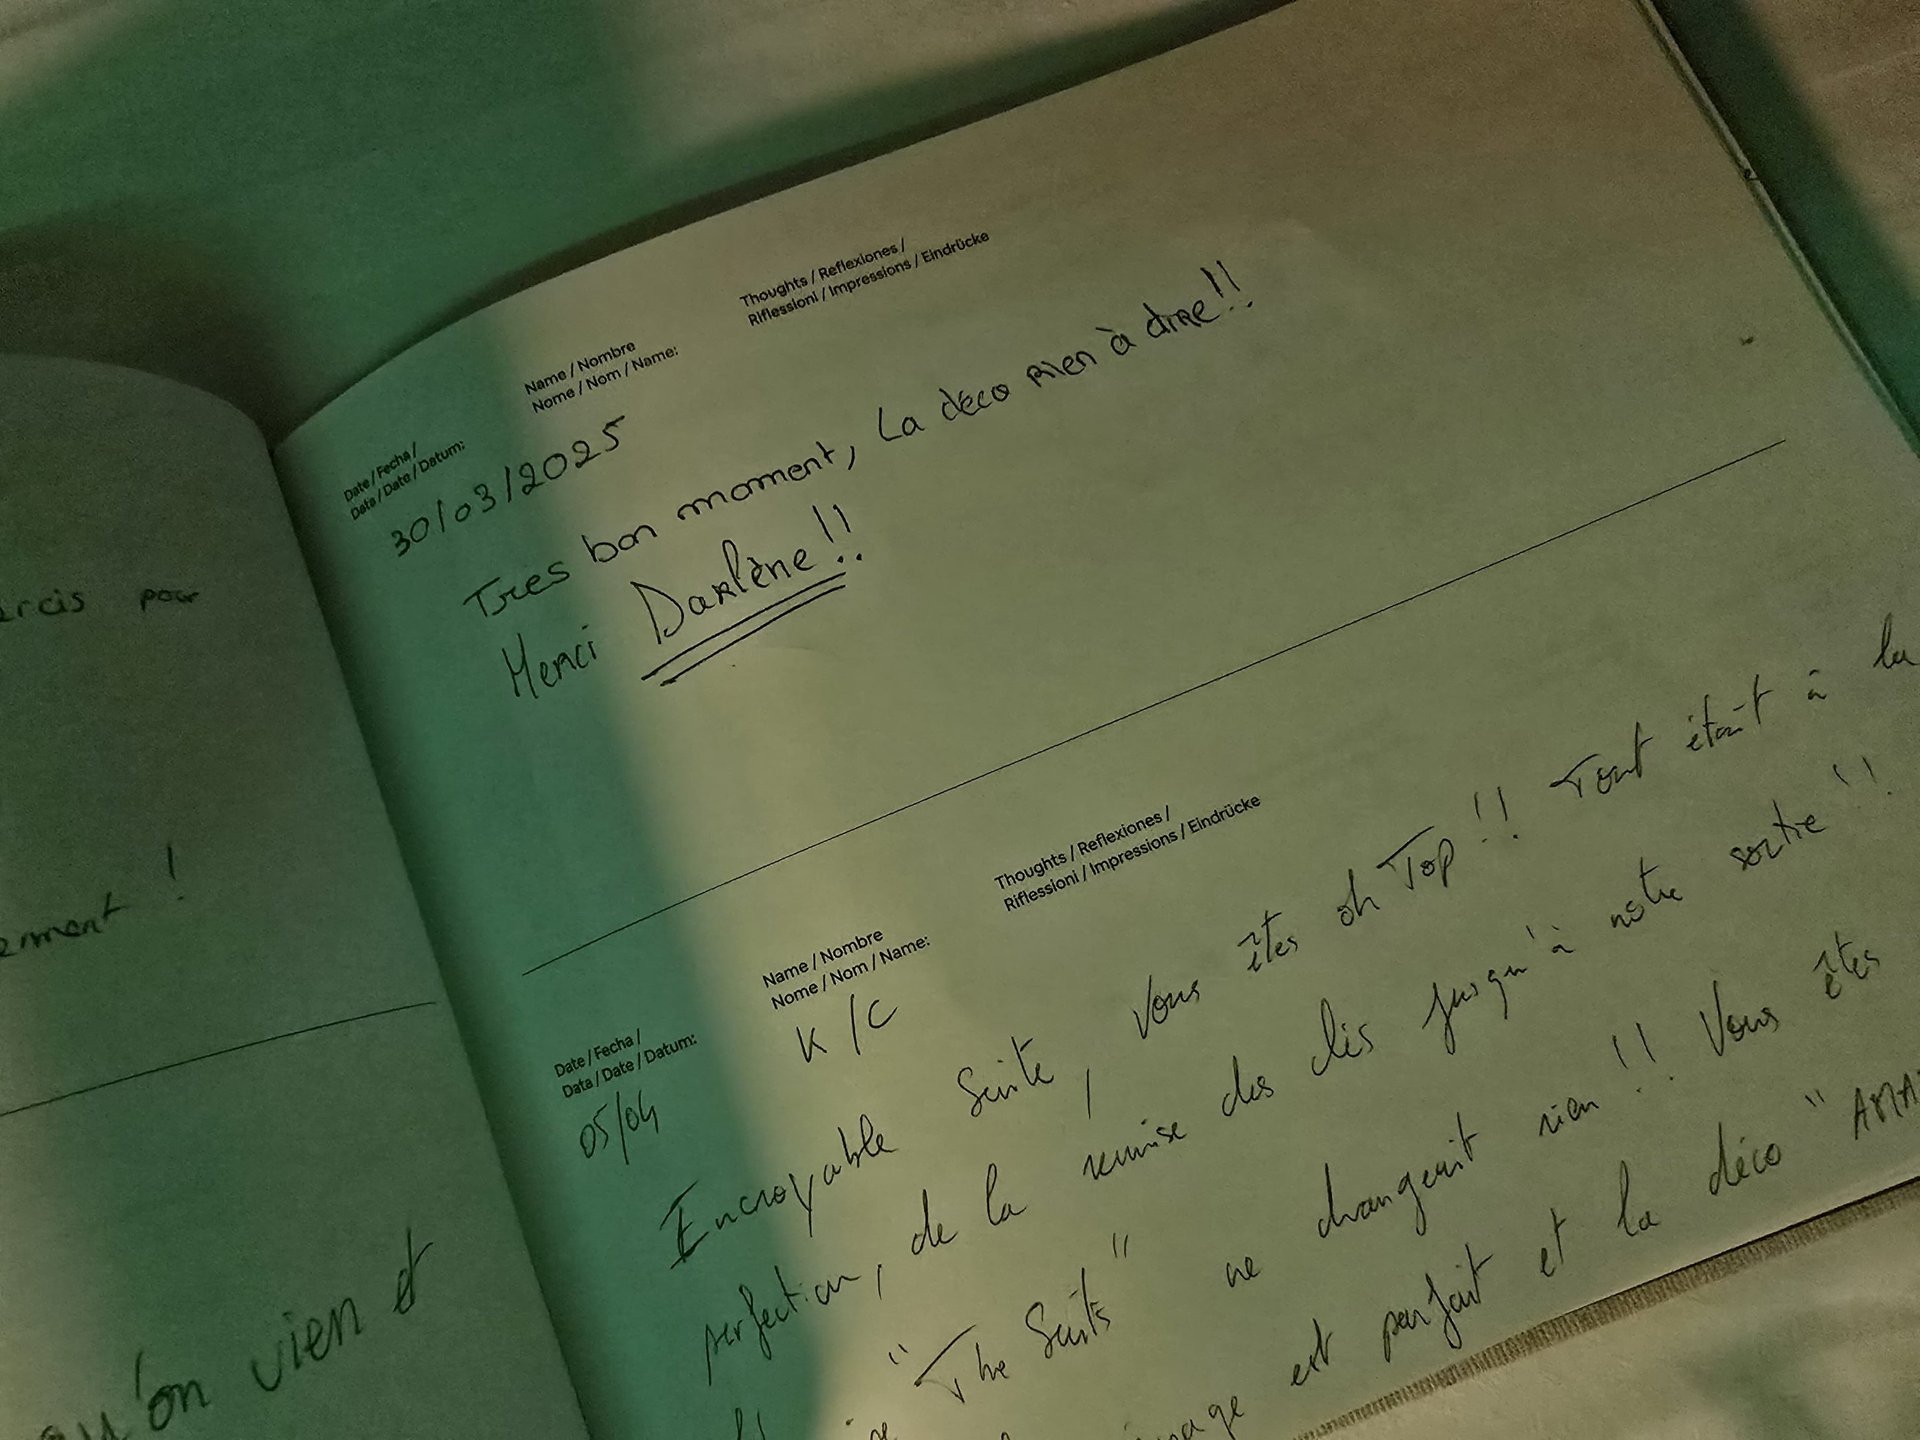 pour
ement !
qu'on vien et
Date / Fecha /
Data / Date / Datum:
Name / Nombre
Nome / Nom / Name:
Thoughts / Reflexiones /
Riflessioni / Impressions / Eindrücke
30/03/2025
Tres bon moment, La déco rien à dire!!
Merci Darlène!!
Date / Fecha /
Data / Date / Datum:
Name / Nombre
Nome / Nom / Name:
Thoughts / Reflexiones /
Riflessioni / Impressions / Eindrücke
05/04
K/C
Encroyable Suite, Vous êtes oh Top!! Tout était à la
perfection, de la remise des clés jusqu'à notre sortie!!
"The Suits" ne changerait rien!! Vous êtes
est parfait et la déco "AMA